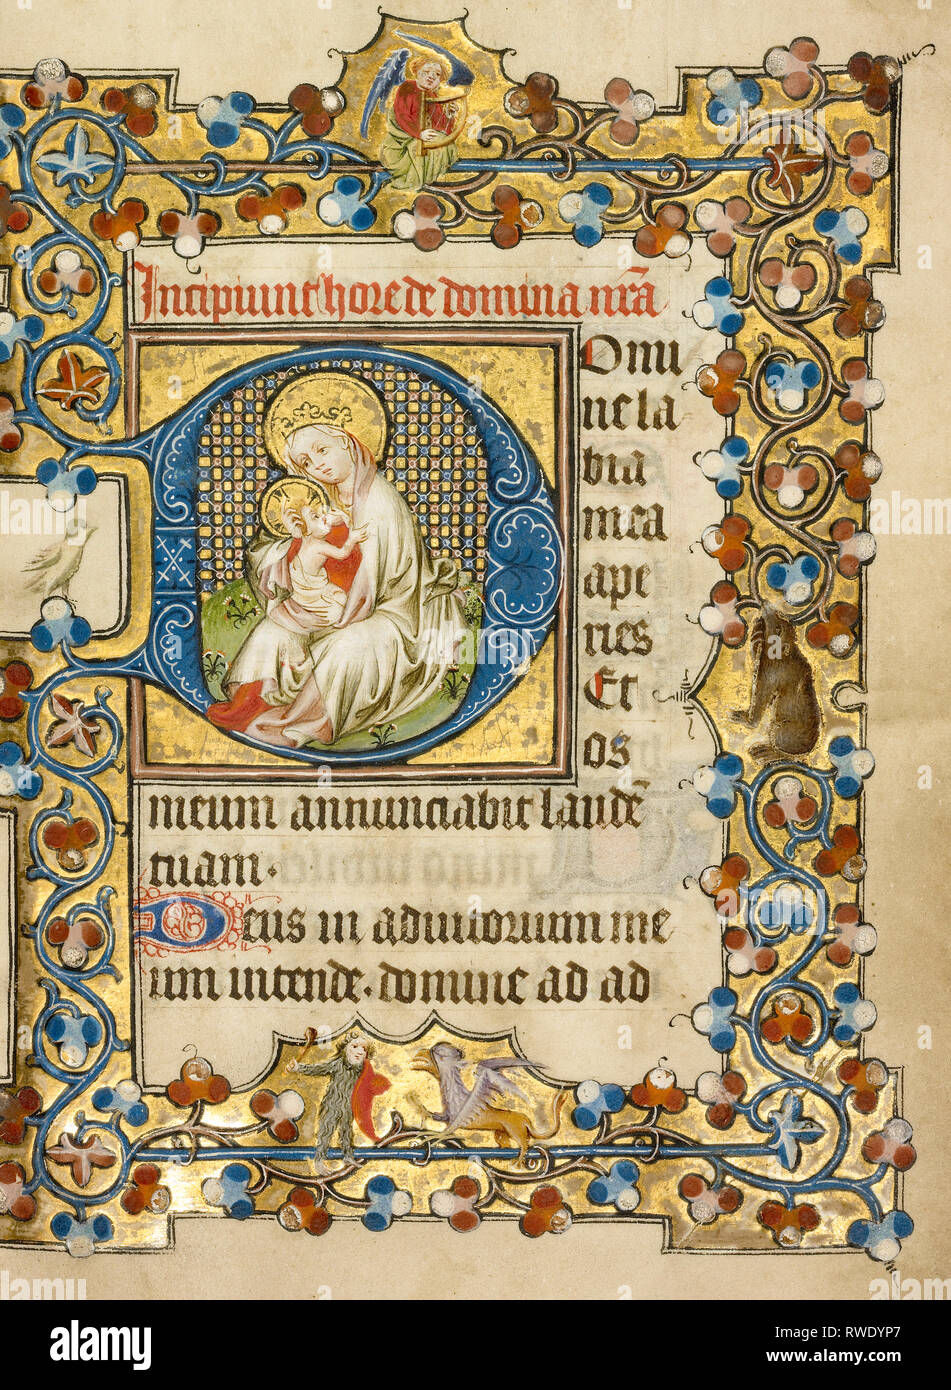 Incipiunt hore de domina nr̃a
Domi
ne la
bia
mea
ape
ries
Et
os
meum annunciabit laudẽ
tuam.
Deus in adiutorium me
um intende. domine ad ad
alamy
Image ID: RWDYP7
www.alamy.com